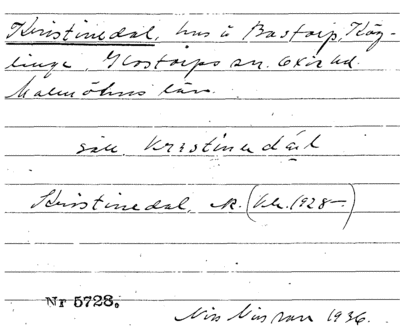 Kristinedal, hus å Bastorp, Käg-
linge, Glostorps sn. Oxie hd.
Malmöhus län.
säll. krɪstinedɑ̄l
Kristinedal, k. (Vsk. 1928-)
Nr 5728.
Nils Nilsson 1936.